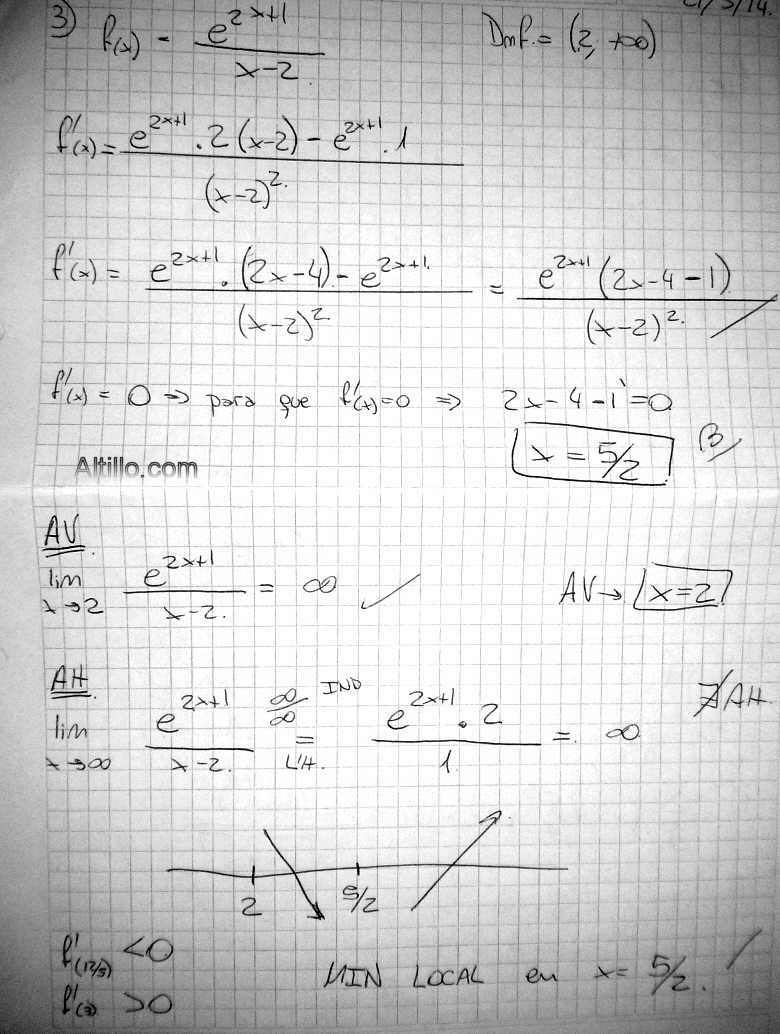 21/5/14.
3) f(x) = e^(2x+1) / (x-2) Dmf. = (2, +∞)
f'(x) = (e^(2x+1) . 2(x-2) - e^(2x+1) . 1) / (x-2)^2
f'(x) = (e^(2x+1) . (2x-4) - e^(2x+1)) / (x-2)^2 = e^(2x+1) (2x-4-1) / (x-2)^2
f'(x) = 0 ⇒ para que f'(x)=0 ⇒ 2x-4-1=0
x = 5/2
Altillo.com
AV
lim x→2 e^(2x+1) / (x-2) = ∞ ✓ AV→ x=2
AH
lim x→∞ e^(2x+1) / (x-2) ∞/∞ IND = L'H. e^(2x+1) . 2 / 1 = ∞ ∄ AH
2 5/2
f'(12/5) <0
MIN LOCAL en x= 5/2.
f'(3) >0